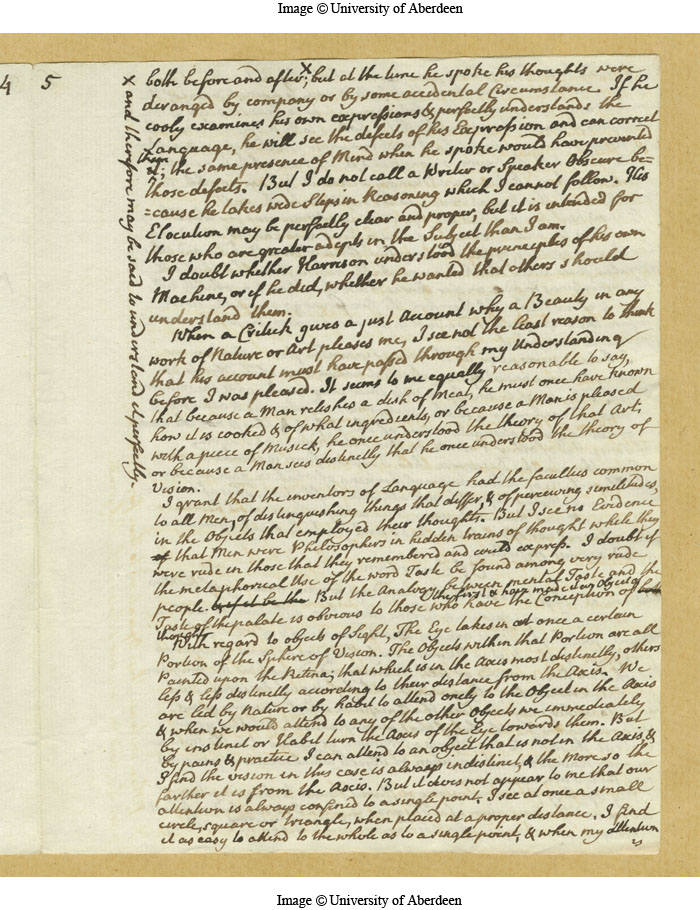 Image © University of Aberdeen
4 5
both before and after x; but at the time he spoke his thoughts were
deranged by company or by some accidental Circumstance. If he
cooly examines his own expressions & perfectly understands the
Language, he will see the defects of his Expression and can correct
them; the same presence of Mind when he spoke would have prevented
those defects. But I do not call a Writer or Speaker Obscure be=
=cause he takes wide Steps in Reasoning which I cannot follow. His
Elocution may be perfectly clear and proper, but it is intended for
those who are greater adepts in the Subject than I am.
I doubt whether Harrison understood the principles of his own
Machine, or if he did, whether he wanted that others should
understand them.
When a Critick gives a just Account why a Beauty in any
work of Nature or Art pleases me, I see not the least reason to think
that his account must have passed through my Understanding
before I was pleased. It seems to me equally reasonable to say,
that because a Man relishes a dish of Meat, he must once have known
how it is cooked & of what ingredients, or because a Man is pleased
with a piece of Musick, he once understood the theory of that Art,
or because a Man sees distinctly that he once understood the theory of
Vision.
I grant that the inventors of Language had the faculties common
to all Men, of distinguishing things that differ, & of perceiving similitudes,
in the Objects that employed their thoughts. But I see no Evidence
that Men were Philosophers in hidden trains of thought while they
were rude in those that they remembered and could express. I doubt if
the metaphorical Use of the word Taste be found among very rude
people. But the Analogy between mental Taste and the
Taste of the palate is obvious to those who have the Conception of both
the first & have made it an Object of
thought
With regard to objects of Sight, The Eye takes in at once a certain
Portion of the Sphere of Vision. The Objects within that Portion are all
Painted upon the Retina; that which is in the Axis most distinctly, others
less & less distinctly according to their distance from the Axis. We
are led by Nature or by habit to attend onely to the Object in the Axis
& when we would attend to any of the other Objects we immediately
by instinct or Habit turn the Axes of the Eye towards them. But
by pains & practice I can attend to an object that is not in the Axis, &
I find the vision in this case is always indistinct, & the More so the
farther it is from the Axis. But it does not appear to me that our
attention is always confined to a single point. I see at once a small
circle, square or triangle, when placed at a proper distance. I find
it as easy to attend to the whole as to a single point, & when my attention
is
x and therefore may be said to understand it perfectly.
Image © University of Aberdeen